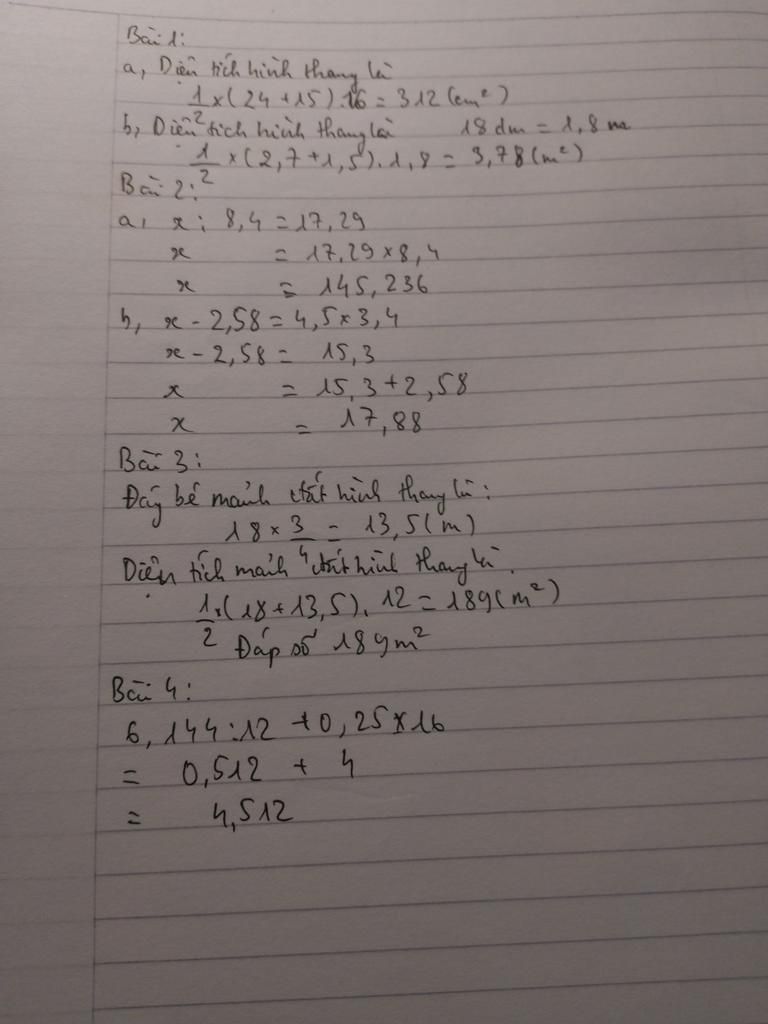 Bài 1:
a, Diện tích hình thang là
1/2 × (24 + 15) . 16 = 312 (cm²)
b, Diện tích hình thang là 18 dm = 1,8 m
1/2 × (2,7 + 1,5) . 1,8 = 3,78 (m²)
Bài 2:
a, x : 8,4 = 17,29
x = 17,29 × 8,4
x = 145,236
b, x - 2,58 = 4,5 × 3,4
x - 2,58 = 15,3
x = 15,3 + 2,58
x = 17,88
Bài 3:
Đáy bé mảnh đất hình thang là:
18 × 3/4 = 13,5 (m)
Diện tích mảnh đất hình thang là.
1/2 . (18 + 13,5) . 12 = 189 (m²)
Đáp số 189 m²
Bài 4:
6,144 : 12 + 0,25 × 16
= 0,512 + 4
= 4,512